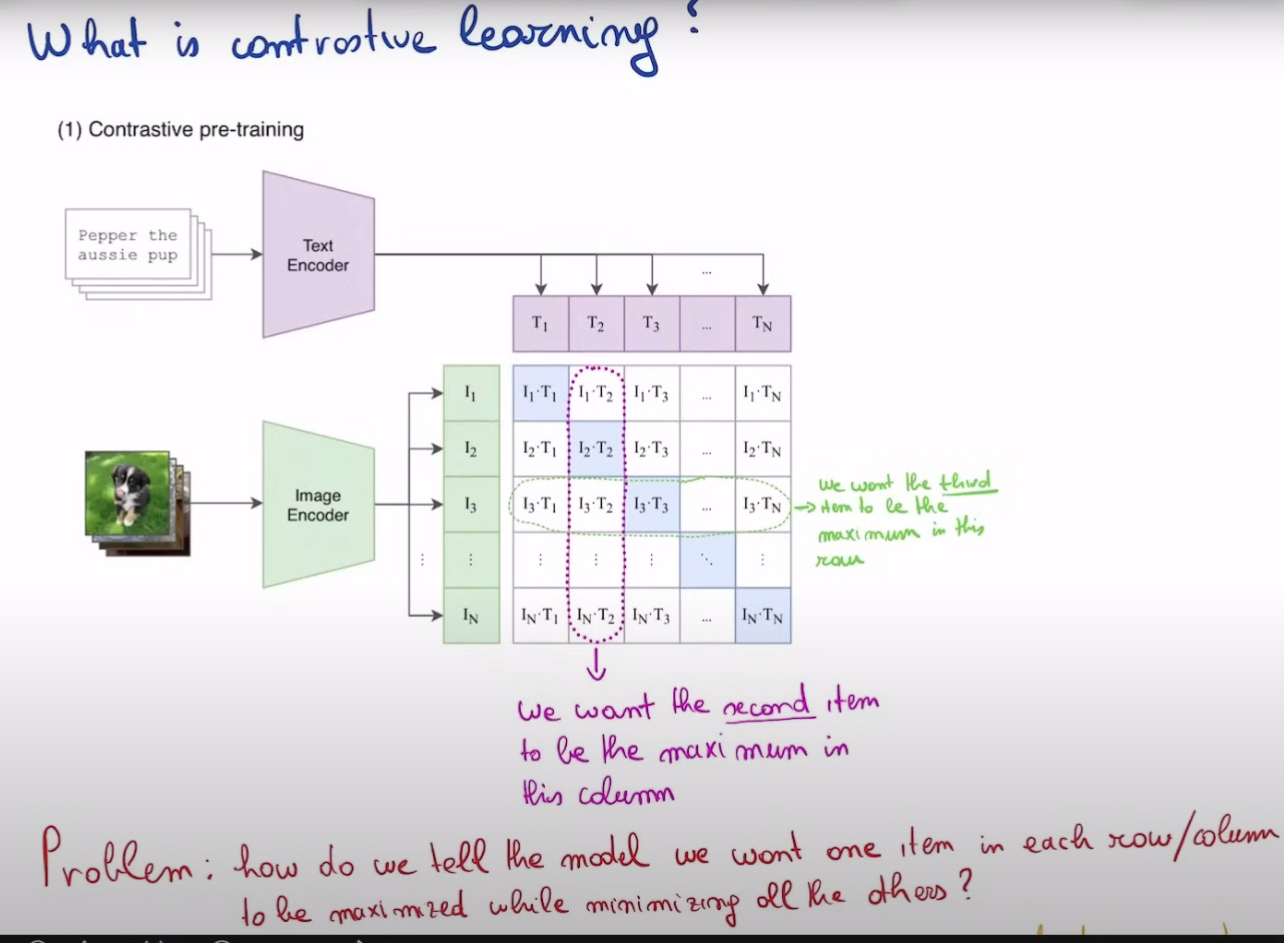 What is contrastive learning?
(1) Contrastive pre-training
Pepper the
aussie pup
Text
Encoder
...
T1 T2 T3 ... TN
I1 I1·T1 I1·T2 I1·T3 ... I1·TN
I2 I2·T1 I2·T2 I2·T3 ... I2·TN
Image
Encoder
I3 I3·T1 I3·T2 I3·T3 ... I3·TN
⋮ ⋮ ⋮ ⋮ ⋮ ⋱ ⋮
IN IN·T1 IN·T2 IN·T3 ... IN·TN
we want the third
item to be the
maximum in this
row
we want the second item
to be the maximum in
this column
Problem: how do we tell the model we want one item in each row/column
to be maximized while minimizing all the others?